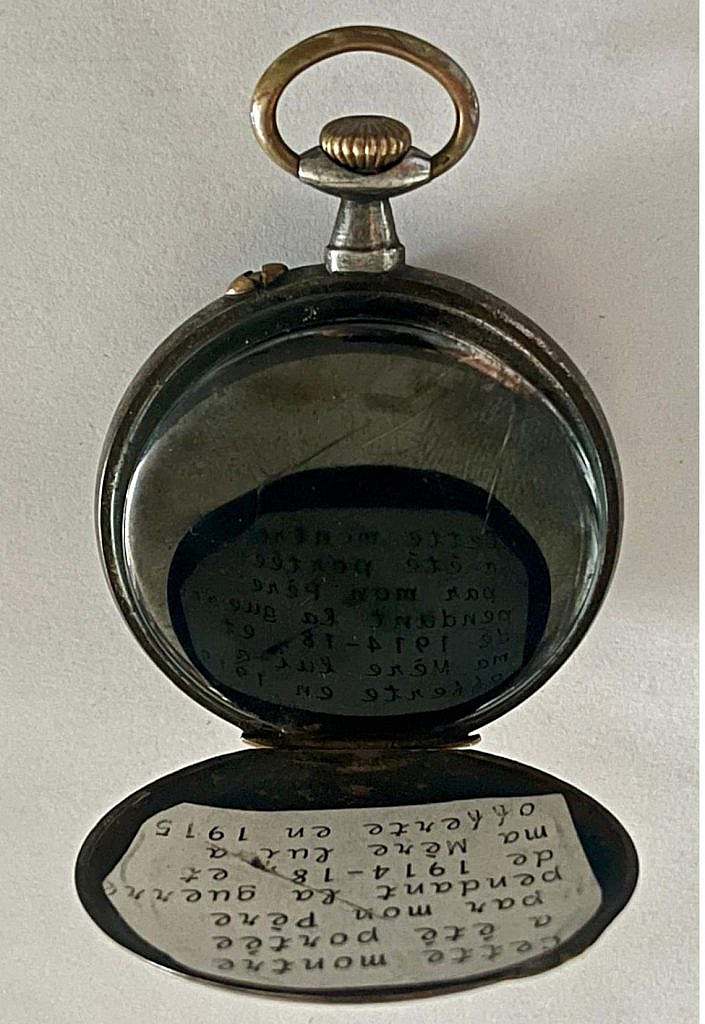 Cette montre
a été portée
par mon Père
pendant la guerre
de 1914-18 et
ma Mère lui a
offerte en 1915